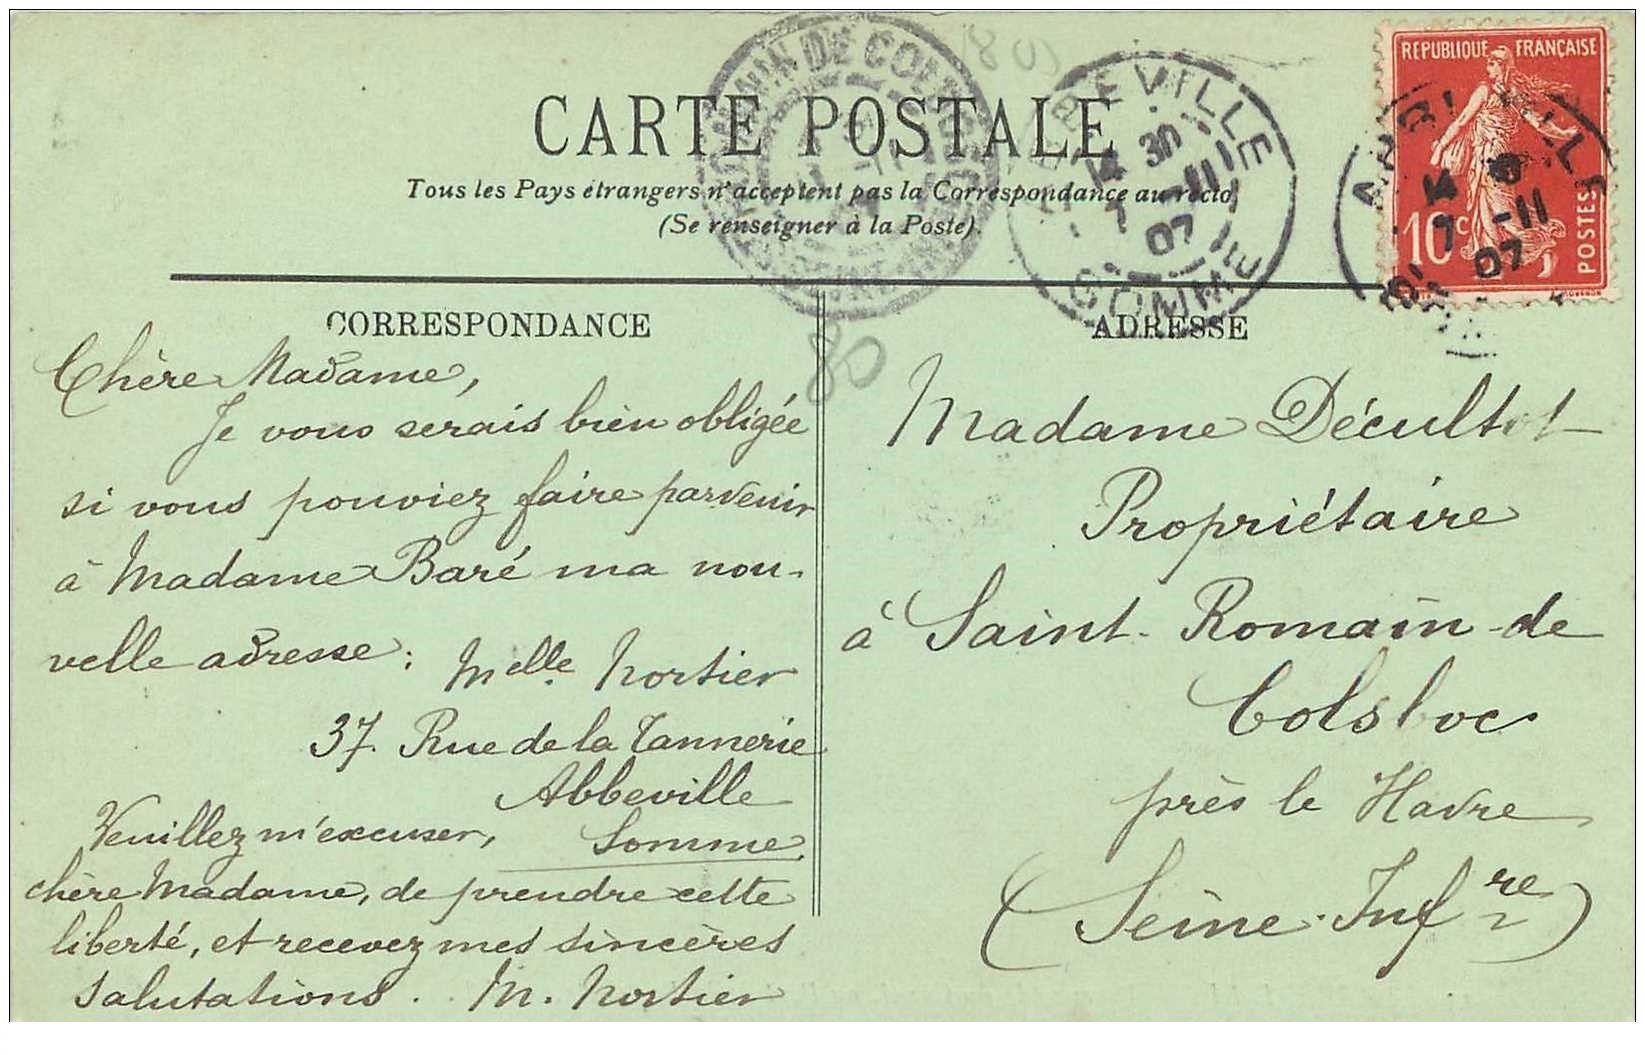 CARTE POSTALE
Tous les Pays étrangers n'acceptent pas la Correspondance au recto
(Se renseigner à la Poste).
REPUBLIQUE FRANÇAISE
10c
POSTES
ABBEVILLE
14 30
7 -11
07
SOMME
CORRESPONDANCE
Chère Madame,
Je vous serais bien obligée
si vous pouviez faire parvenir
à Madame Baré ma nou-
velle adresse: Melle Nortier
37. Rue de la Tannerie
Abbeville
Somme.
Veuillez m'excuser,
chère Madame, de prendre cette
liberté, et recevez mes sincères
salutations. M. Nortier
80
ADRESSE
Madame Décultot
Propriétaire
à Saint-Romain-de
Colsboc
près le Havre
(Seine-Infre)